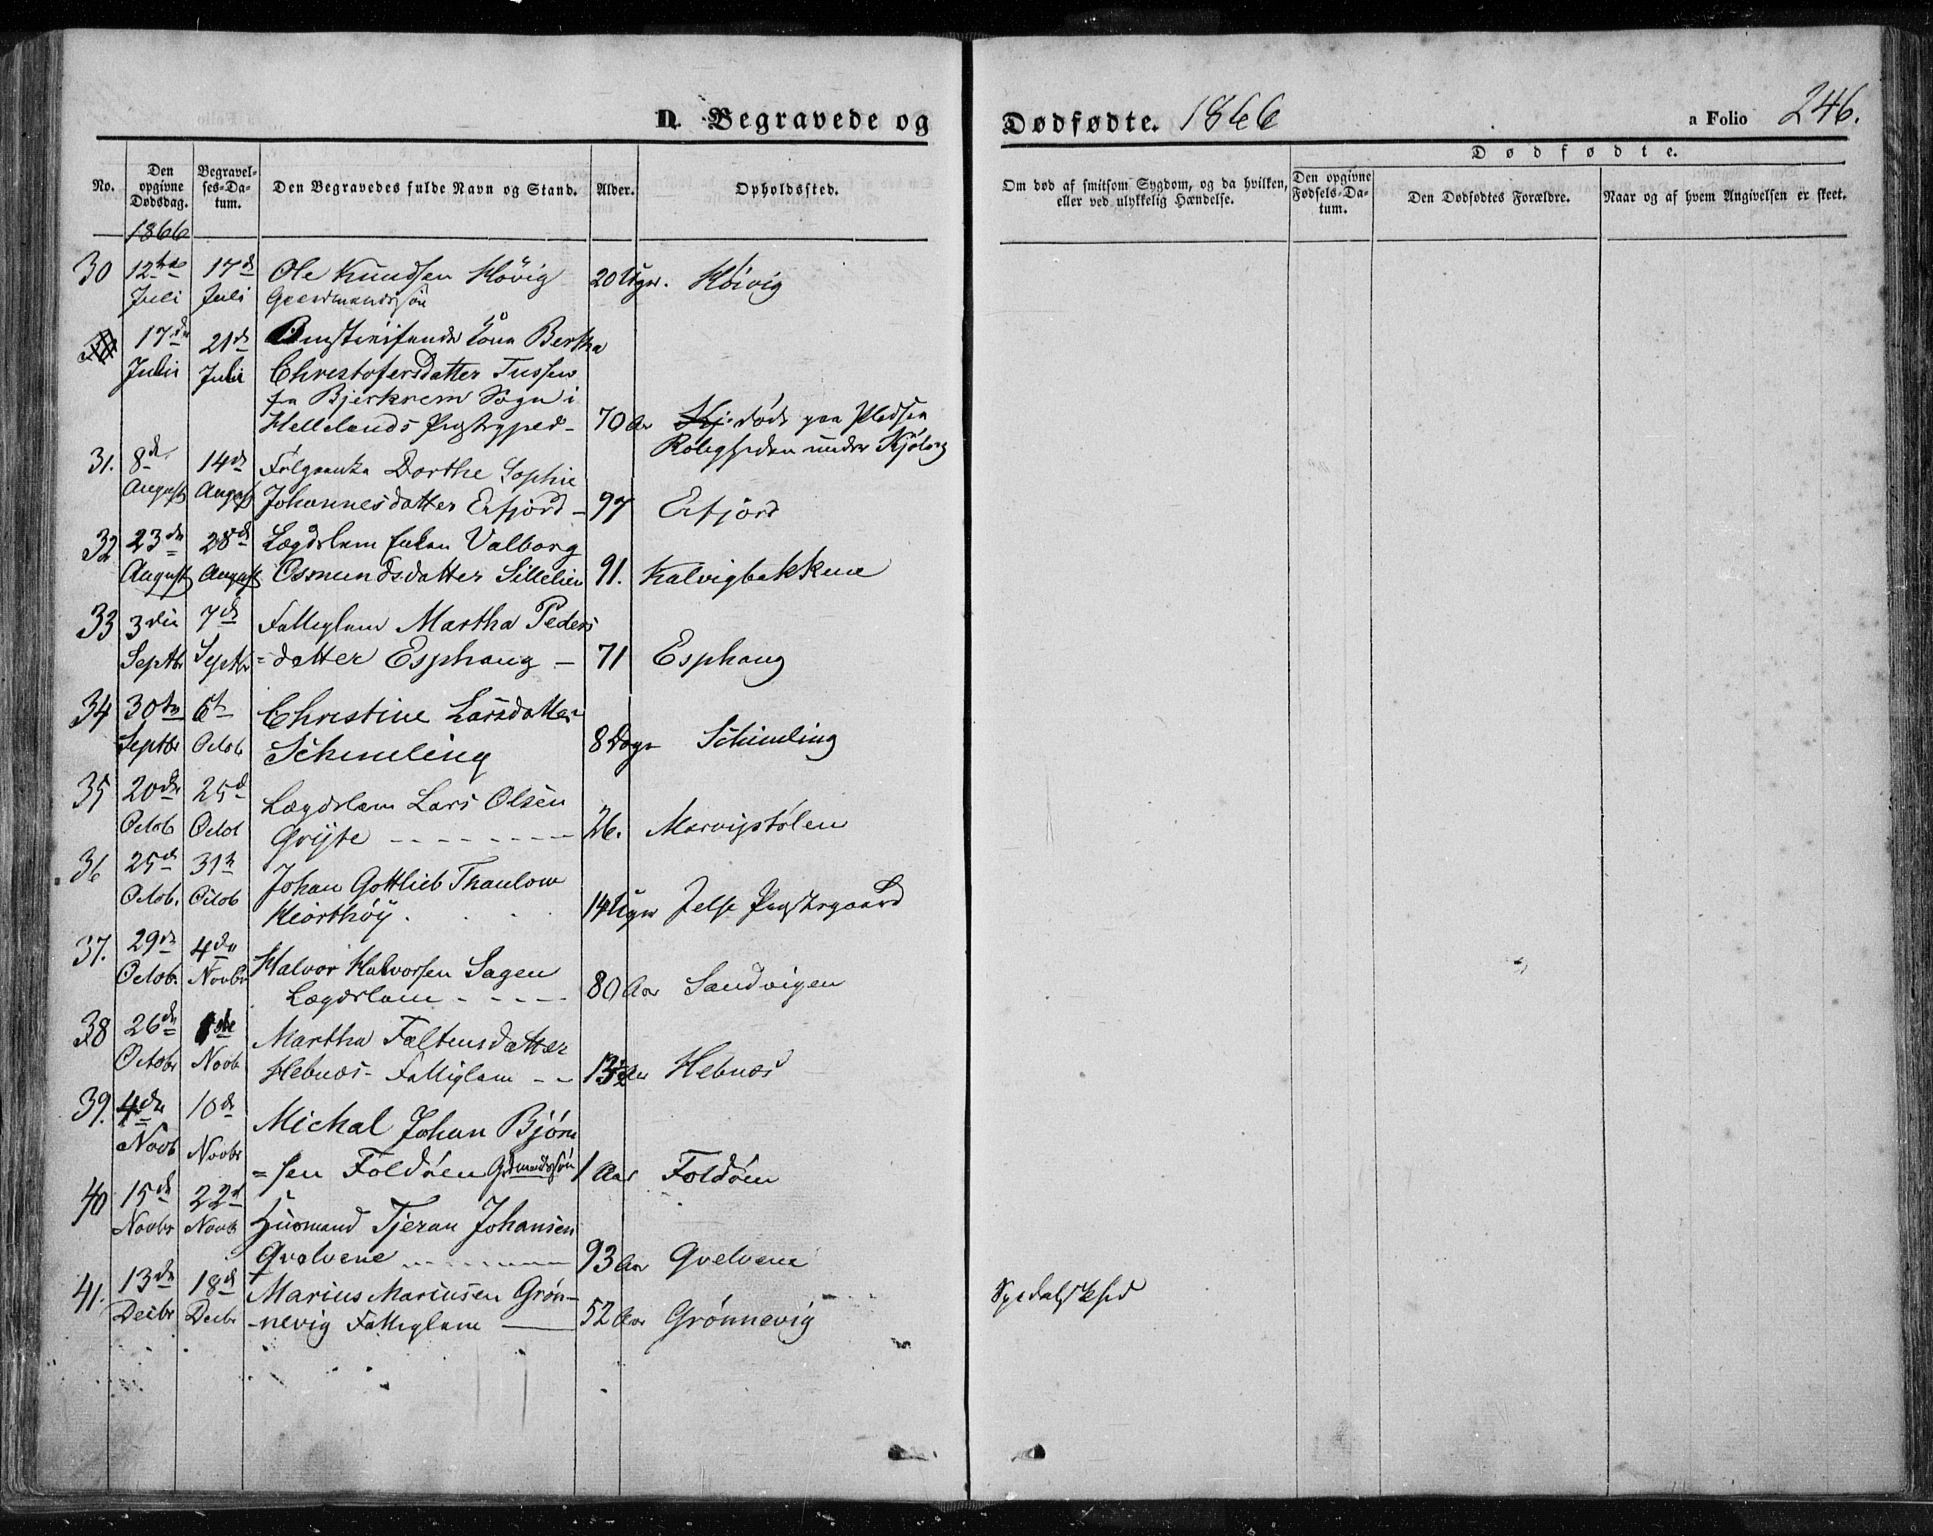 D. Begravede og
Dødfødte. 1866
a Folio 246.
No.
Den opgivne Dødsdag.
Begravelses-Datum.
Den Begravedes fulde Navn og Stand.
Alder.
Opholdssted.
Om død af smitsom Sygdom, og da hvilken, eller ved ulykkelig Hændelse.
Dødfødte.
Den opgivne Fødsels-Datum.
Den Dødfødtes Forældre.
Naar og af hvem Angivelsen er skeet.
1866
30 12te 17de Ole Knudsen Høvig 20 Uger. Høivig
Juli Juli Gaardmandssøn
17de 21de Kone Bertha
Juli Juli Christofersdatter Tussen
fra Bjerkrem Sogn i
Hellelands Præstegjeld - 70 Aar døde paa Pladsen
Roligheden under Kjølvig
31. 8de 14de Dorthe Sophie
August August Johannesdatter Erfjord - 97 Erfjord
32 23de 28de Lægdslem Enken Valborg
August August Osmundsdatter Sillelien 91. Kalvigbakkene
33 3die 7de Fattiglem Martha Peders
Septbr Septbr =datter Esphaug - 71 Esphaug
34 30te 6te Christine Larsdatter
Septbr Octob Schimling 8 Dage Schimling
35 20de 25de Lægdslem Lars Olsen
Octob Octob Gryte 26. Marvigstølen
36 25de 31te Johan Gottlieb Thaulow
Octob. Octob Hiorthøy 14 Uger Jelse Præstegaard
37. 29de 4de Halvor Halvorsen Sagen
Octob. Novbr Lægdslem 80 Aar Sandvigen
38 26de 1ste Martha Faltensdatter
Octobr Novb Hebnæs - Fattiglem - - 13½ Aar Hebnæs
39. 4de 10de Michal Johan Bjørn
Novb Novbr =sen Foldøen Grdmandssøn 1 Aar Foldøen
40 15de 22de Huusmand Tjeran Johansen
Novbr Novb Qvelvene 93 Aar Qvelvene
41. 13de 18de Marius Mariusen Grøn-
Decbr Decbr -nevig Fattiglem 52 Aar Grønnevig
Spedalskhed